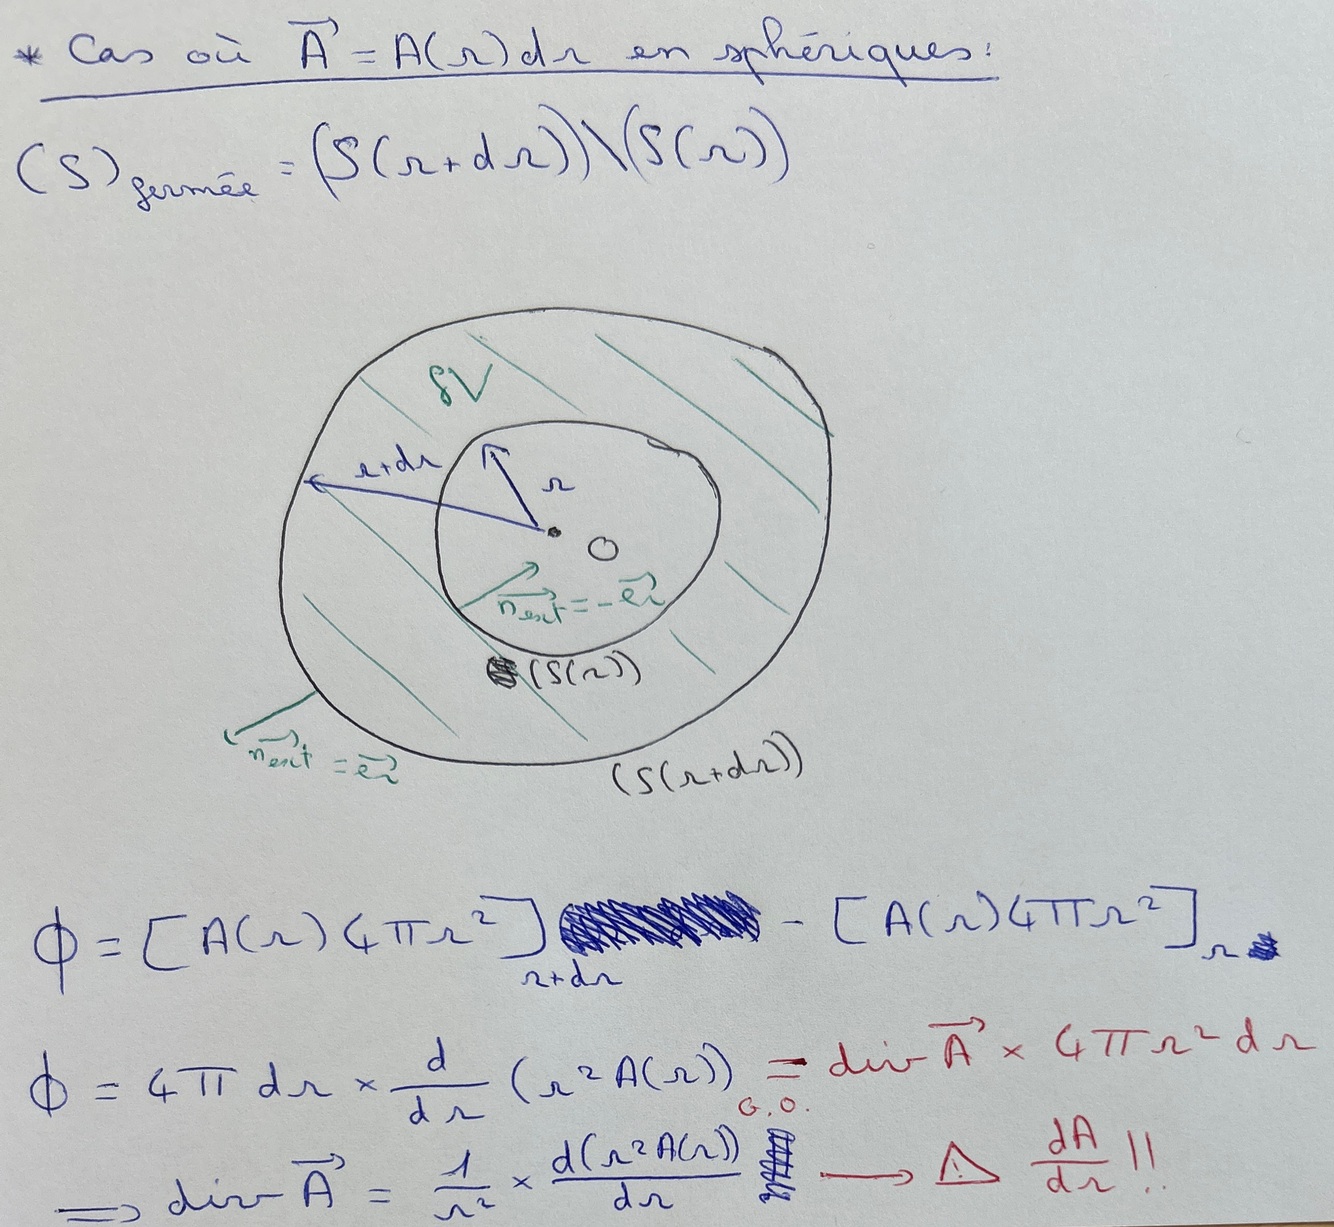 * Cas où A⃗ = A(r)dr en sphériques:
(S)fermée = (S(r+dr))\(S(r))
δV
r+dr
r
O
n⃗ext = -e⃗r
(S(r))
n⃗ext = e⃗r
(S(r+dr))
ϕ = [A(r)4πr²]r+dr - [A(r)4πr²]r
ϕ = 4π dr × d/dr (r²A(r)) = G.O. div A⃗ × 4πr²dr
⟹ div A⃗ = 1/r² × d(r²A(r))/dr ⟶ ⚠ dA/dr !!